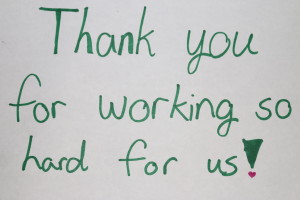 Thank you
for working so
hard for us!